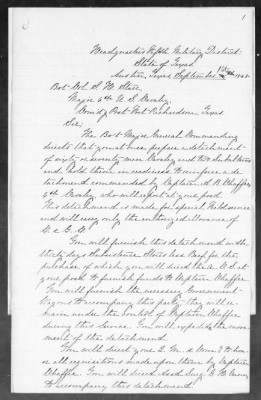 1
Headquarters Fifth Military District
State of Texas
Austin, Texas September 1868.
Bvt. Col. S. H. Starr
Major 6th U S Cavalry
Comdg Post Fort Richardson Texas
Sir,
The Bvt Major General Commanding
directs that you at once prepare a detachment
of sixty or seventy men Cavalry and two Subalterns
and hold them in readiness to reinforce a de-
tachment commanded by Captain A. R. Chaffee
6th Cavalry who will report at your post.
This detachment is made for special field service
and will carry only the authorized allowance of
C. & G. E.
You will furnish this detachment with
thirty days Subsistence Stores less Beef, for the
purchase of which you will direct the A. C. S. at
your post to furnish funds to Captain Chaffee
You will furnish the necessary Government
Wagons to accompany this party, they will re-
main under the control of Captain Chaffee
during this service. You will expedite the move-
ment of the detachment.
You will direct your Q. M. &
all requisitions made upon them by Captain
Chaffee. You will direct Asst Surg
to accompany this detachment.